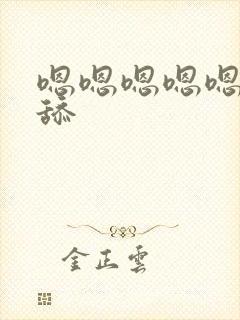 嗯嗯嗯嗯嗯
舔
金正雲